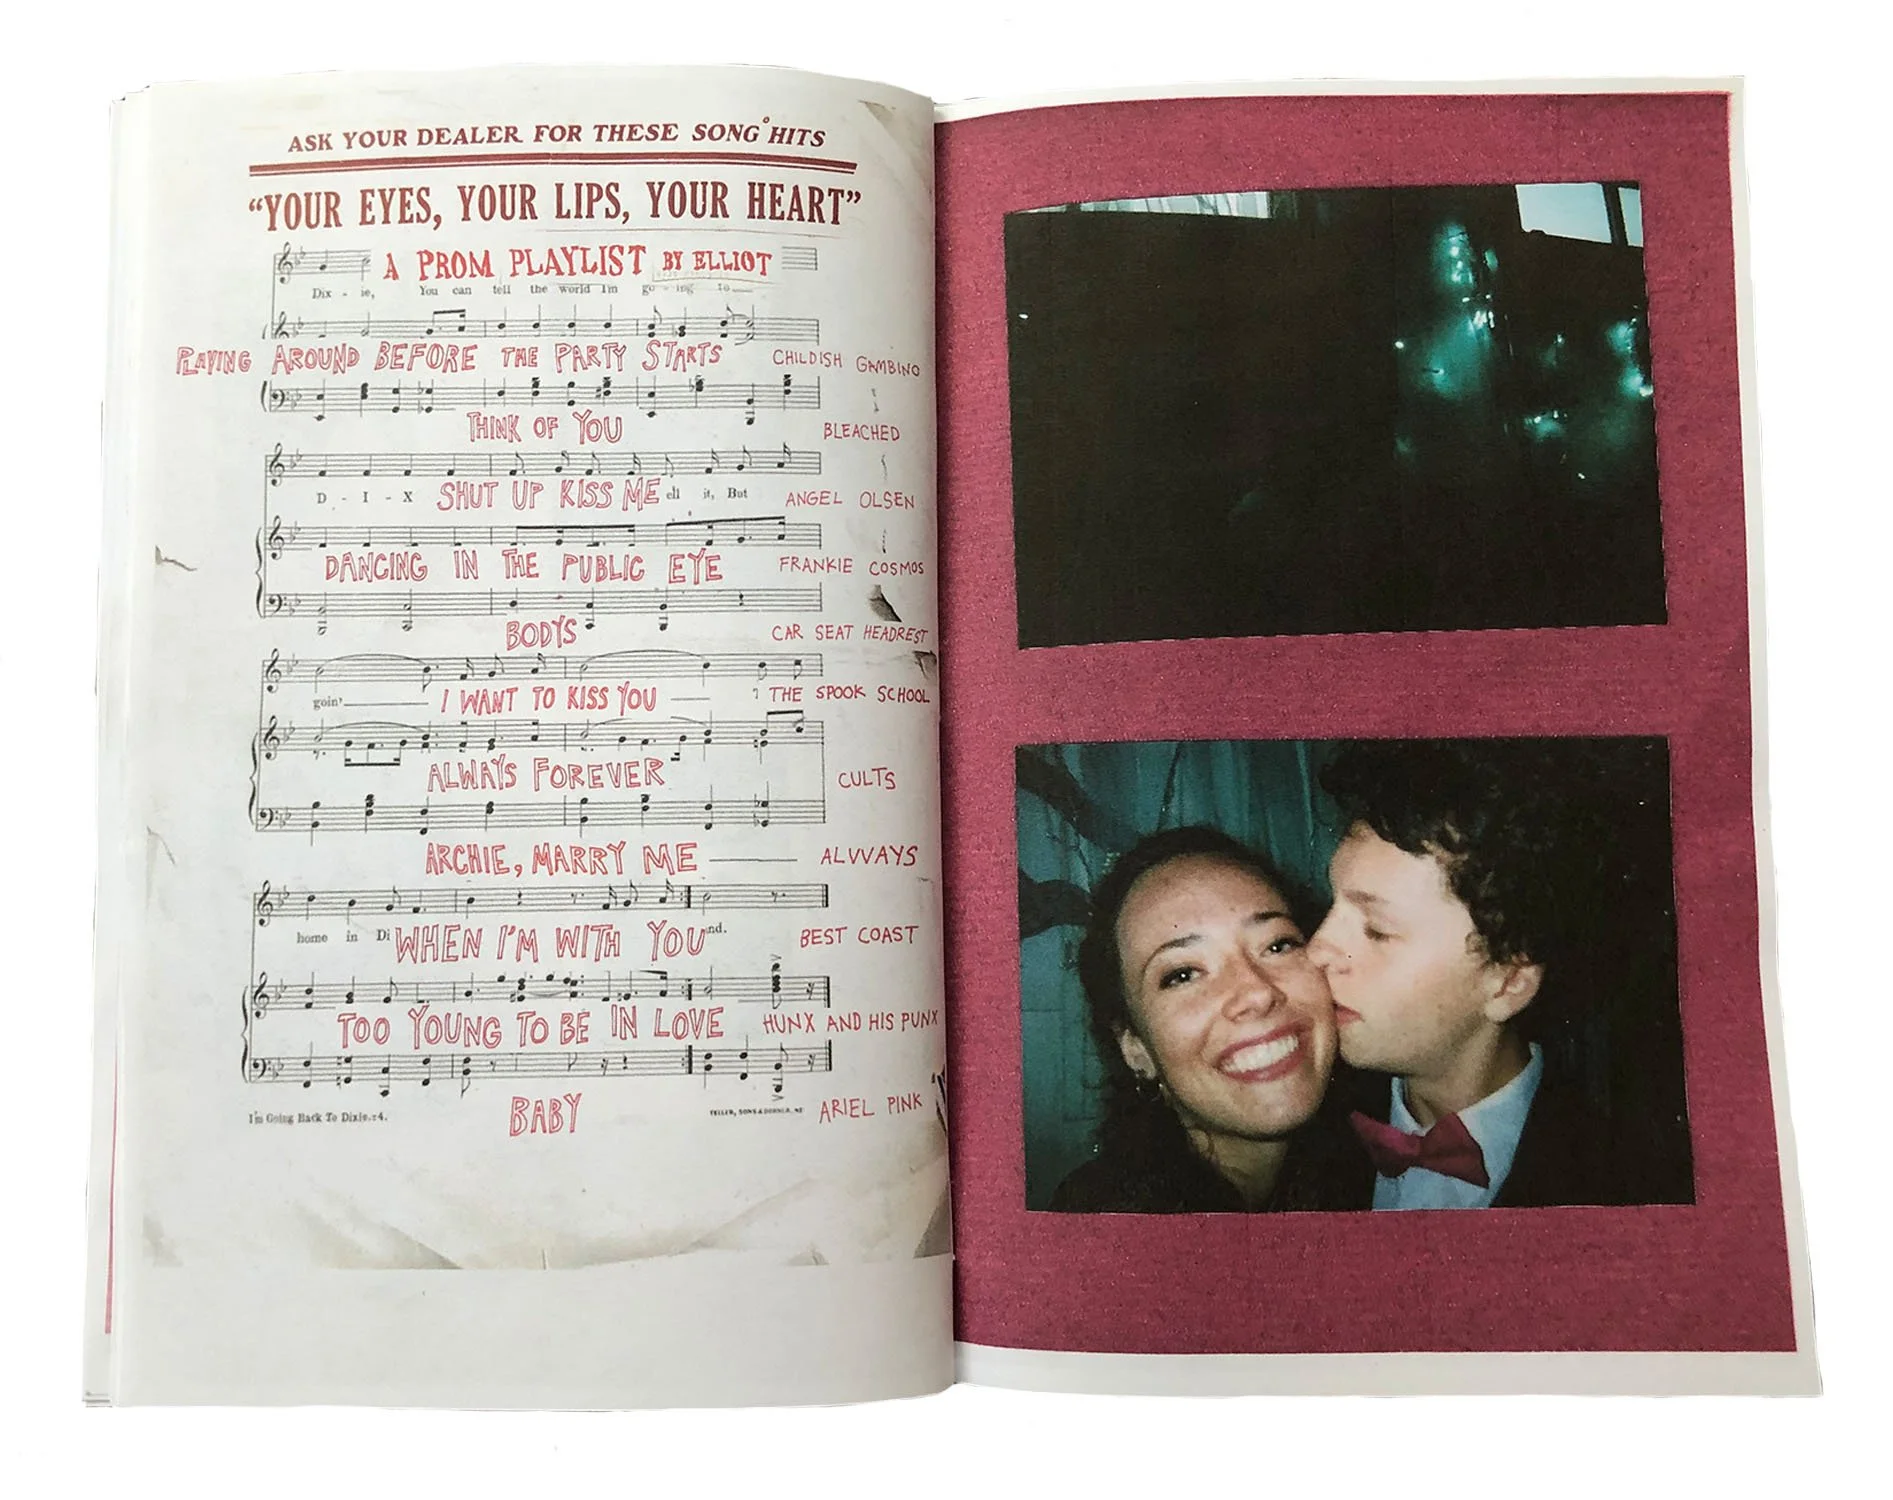 ASK YOUR DEALER FOR THESE SONG HITS
"YOUR EYES, YOUR LIPS, YOUR HEART"
A PROM PLAYLIST BY ELLIOT
Dix - ie, You can tell the world I'm go - ing to
PLAYING AROUND BEFORE THE PARTY STARTS CHILDISH GAMBINO
THINK OF YOU BLEACHED
D - I - X SHUT UP KISS ME ell it, But ANGEL OLSEN
DANCING IN THE PUBLIC EYE FRANKIE COSMOS
BODYS CAR SEAT HEADREST
goin' I WANT TO KISS YOU THE SPOOK SCHOOL
ALWAYS FOREVER CULTS
ARCHIE, MARRY ME ALVVAYS
home in Di WHEN I'M WITH YOU nd. BEST COAST
TOO YOUNG TO BE IN LOVE HUNX AND HIS PUNX
I'm Going Back To Dixie. 4. BABY TELLER, SONS & DORNER, NY ARIEL PINK